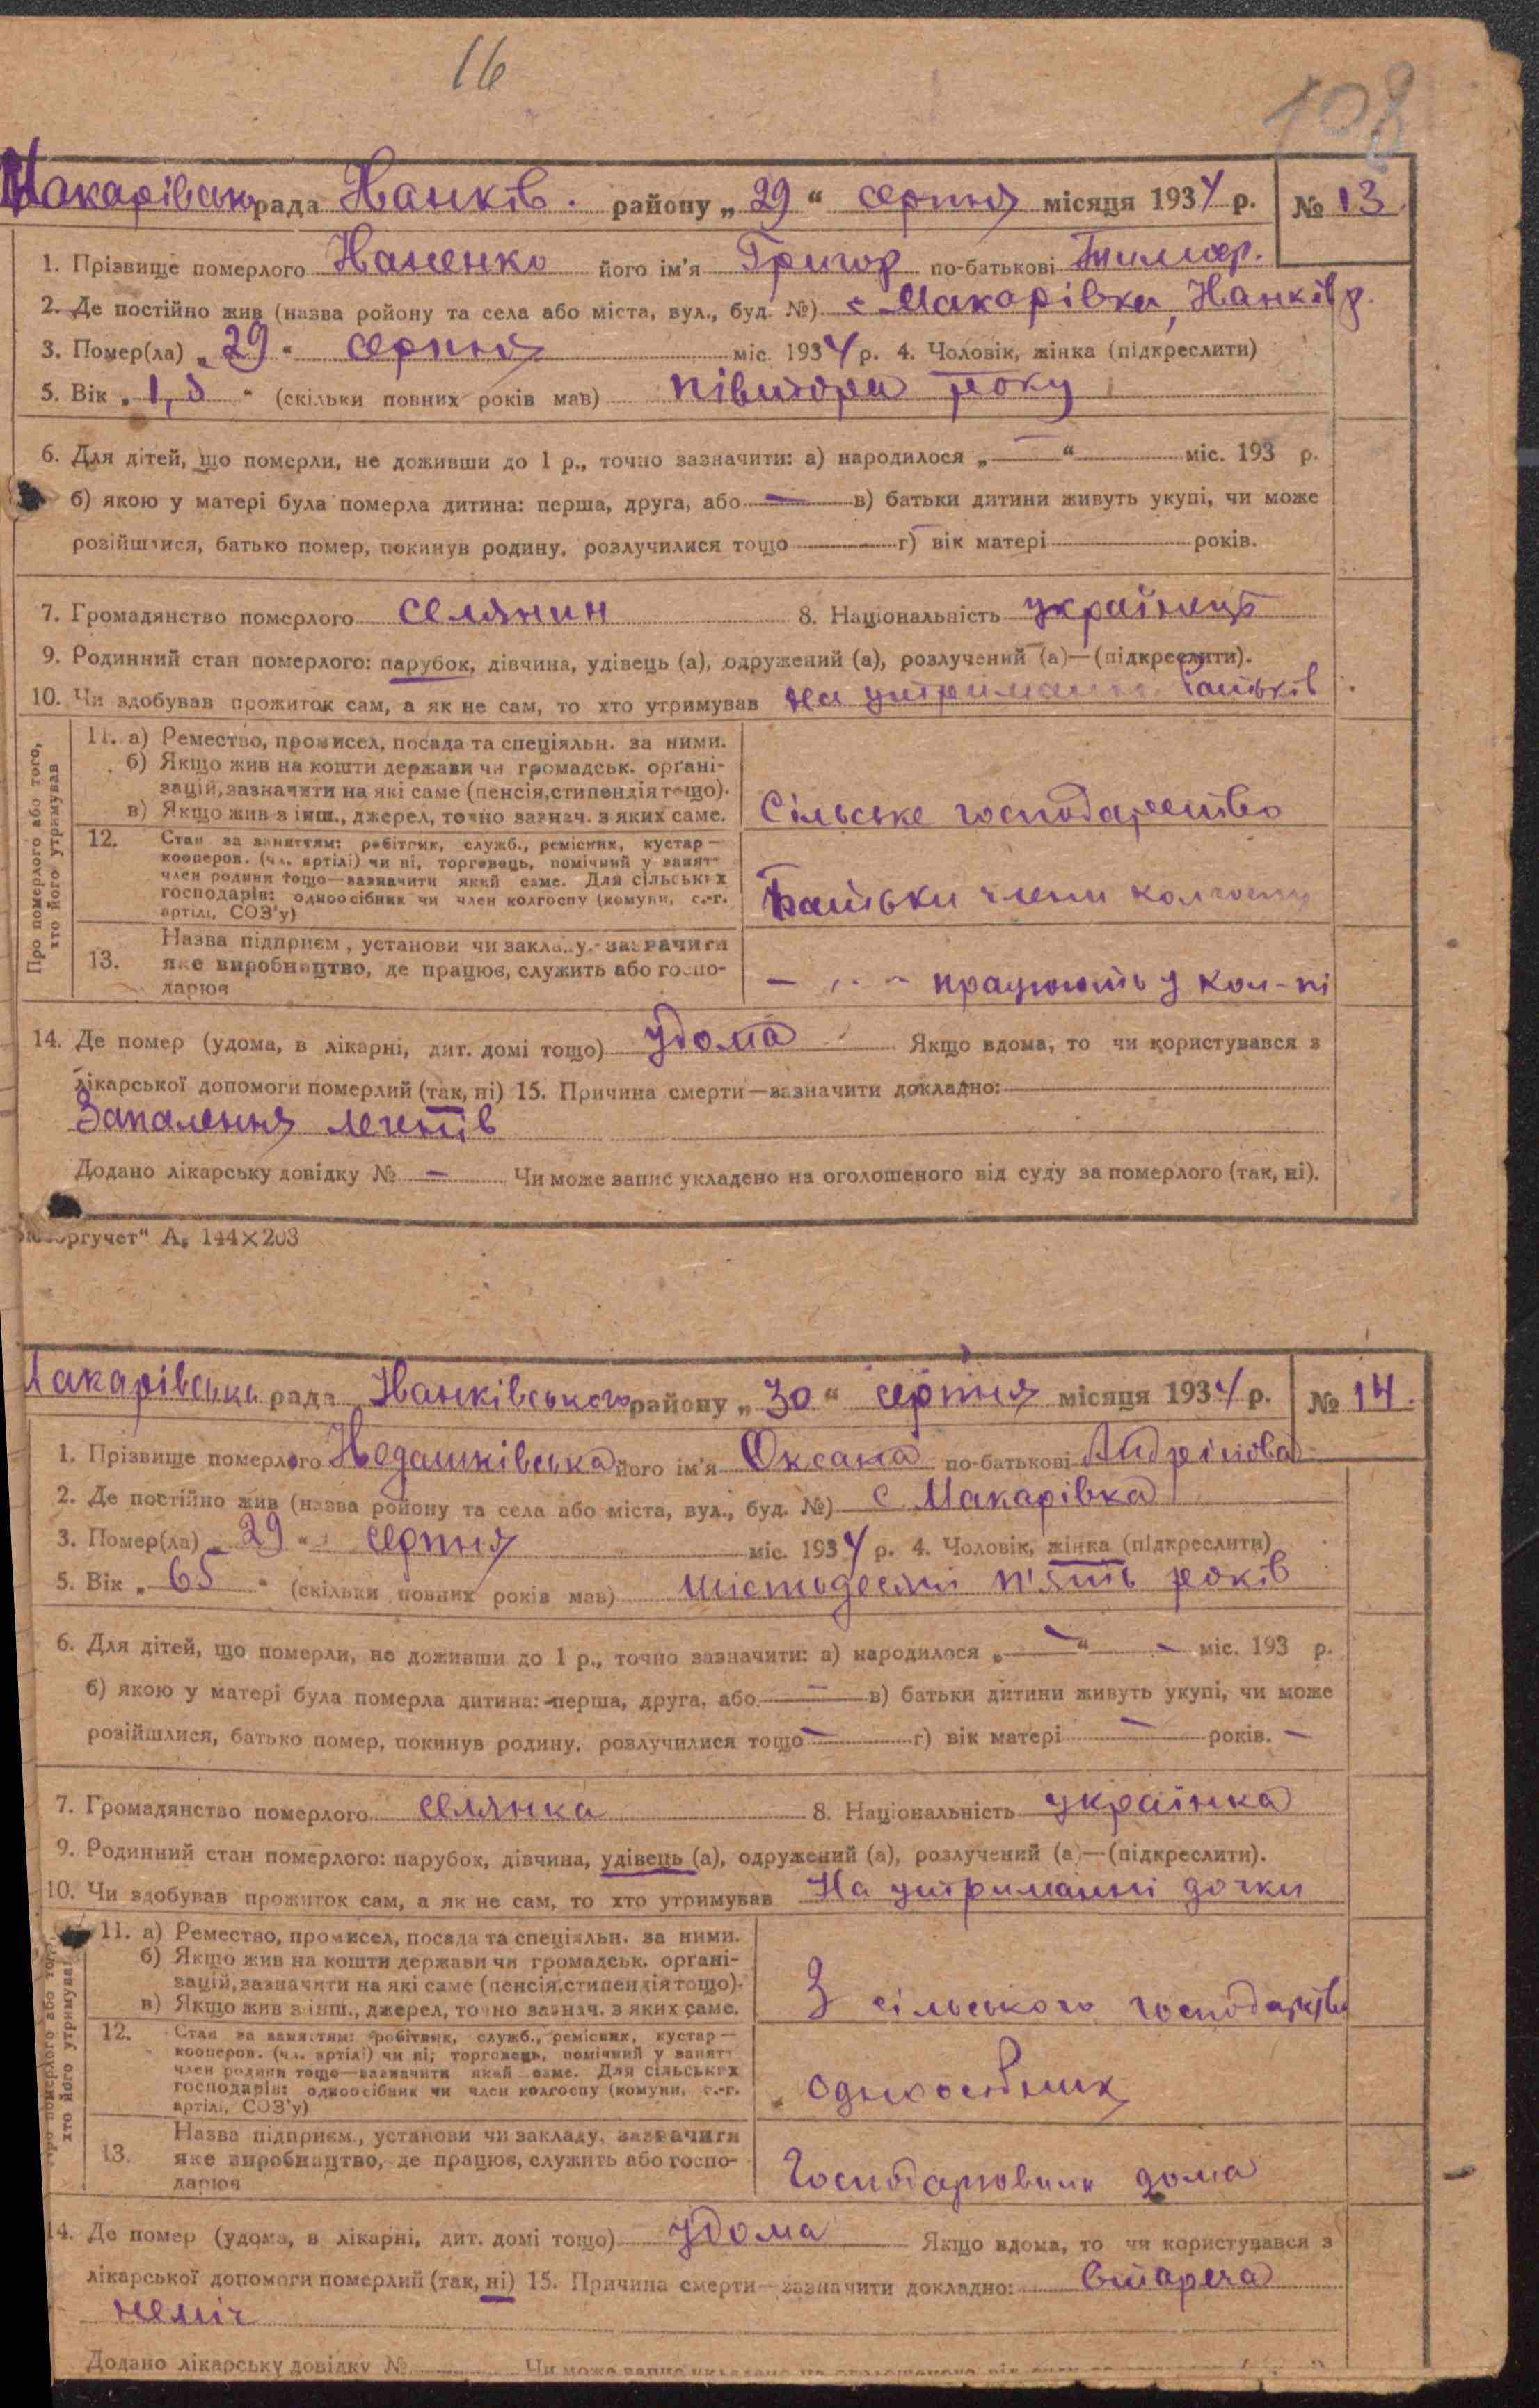 16
108
Макарівська рада Нанків. району „29“ серпня місяця 1934 р. № 13.
1. Прізвище померлого Наненко його ім'я Григор по-батькові Тимоф.
2. Де постійно жив (назва ройону та села або міста, вул., буд. №) с Макарівка, Нанків р.
3. Помер(ла) „29“ серпня міс. 1934 р. 4. Чоловік, жінка (підкреслити)
5. Вік „1,5“ (скільки повних років мав) півтора року
6. Для дітей, що померли, не доживши до 1 р., точно зазначити: а) народилося „—“ міс. 193 р.
б) якою у матері була померла дитина: перша, друга, або — в) батьки дитини живуть укупі, чи може
розійшлися, батько помер, покинув родину, розлучилися тощо г) вік матері років.
7. Громадянство померлого селянин 8. Національність українець
9. Родинний стан померлого: парубок, дівчина, удівець (а), одружений (а), розлучений (а)—(підкреслити).
10. Чи здобував прожиток сам, а як не сам, то хто утримував на утриманні батьків
Про померлого або того,
хто його утримував
11. а) Ремество, промисел, посада та спеціяльн. за ними.
б) Якщо жив на кошти держави чи громадськ. органі-
зацій, зазначити на які саме (пенсія, стипендія тощо).
в) Якщо жив з інш., джерел, точно зазнач. з яких саме.
Сільське господарство
12. Стан за заняттям: робітник, служб., ремісник, кустар—
кооперов. (чл. артілі) чи ні, торговець, помічний у занят-
член родини тощо—зазначити який саме. Для сільських
господарів: одноосібник чи член колгоспу (комуни, с.-г.
артілі, СОЗ'у)
Батьки члени колгоспу
13. Назва підприєм., установи чи закладу, зазначити
яке виробництво, де працює, служить або госпо-
дарює
— „ — працюють у кол-пі
14. Де помер (удома, в лікарні, дит. домі тощо) удома Якщо вдома, то чи користувався з
лікарської допомоги померлий (так, ні) 15. Причина смерти—зазначити докладно:
Запалення легенів
Додано лікарську довідку № — Чи може запис укладено на оголошеного від суду за померлого (так, ні).
оргучет“ А₅ 144×203
Макарівська рада Нанківського району „30“ серпня місяця 1934 р. № 14.
1. Прізвище померлого Недашківська його ім'я Оксана по-батькові Андріївна
2. Де постійно жив (назва ройону та села або міста, вул., буд. №) с. Макарівка
3. Помер(ла) „29“ серпня міс. 1934 р. 4. Чоловік, жінка (підкреслити)
5. Вік „65“ (скільки повних років мав) шістьдесят п'ять років
6. Для дітей, що померли, не доживши до 1 р., точно зазначити: а) народилося „—“ — міс. 193 р.
б) якою у матері була померла дитина: перша, друга, або — в) батьки дитини живуть укупі, чи може
розійшлися, батько помер, покинув родину, розлучилися тощо — г) вік матері — років. —
7. Громадянство померлого селянка 8. Національність українка
9. Родинний стан померлого: парубок, дівчина, удівець (а), одружений (а), розлучений (а)—(підкреслити).
10. Чи здобував прожиток сам, а як не сам, то хто утримував На утриманні дочки
Про померлого або того,
хто його утримував
11. а) Ремество, промисел, посада та спеціяльн. за ними.
б) Якщо жив на кошти держави чи громадськ. органі-
зацій, зазначити на які саме (пенсія, стипендія тощо).
в) Якщо жив з інш., джерел, точно зазнач. з яких саме.
З сільського господарства
12. Стан за заняттям: робітник, служб., ремісник, кустар—
кооперов. (чл. артілі) чи ні; торговець, помічний у занят-
член родини тощо—зазначити який саме. Для сільських
господарів: одноосібник чи член колгоспу (комуни, с.-г.
артілі, СОЗ'у)
одноосібник
13. Назва підприєм., установи чи закладу, зазначити
яке виробництво, де працює, служить або госпо-
дарює
Господарювали дома
14. Де помер (удома, в лікарні, дит. домі тощо) удома Якщо вдома, то чи користувався з
лікарської допомоги померлий (так, ні) 15. Причина смерти—зазначити докладно: Стареча
неміч
Додано лікарську довідку №